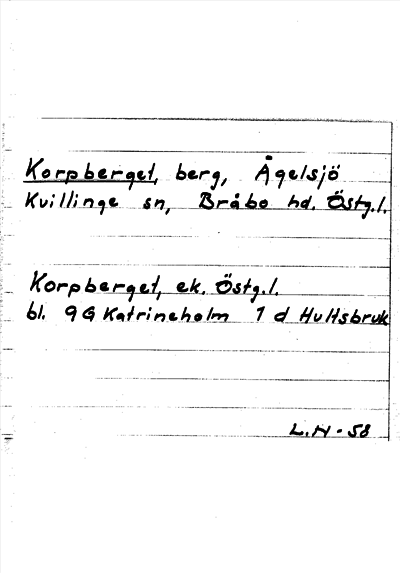 Korpberget, berg, Ågelsjö
Kvillinge sn, Bråbo hd. Östg.l.
Korpberget, ek. Östg.l.
bl. 9G Katrineholm 1 d Hultsbruk
L.N - 58